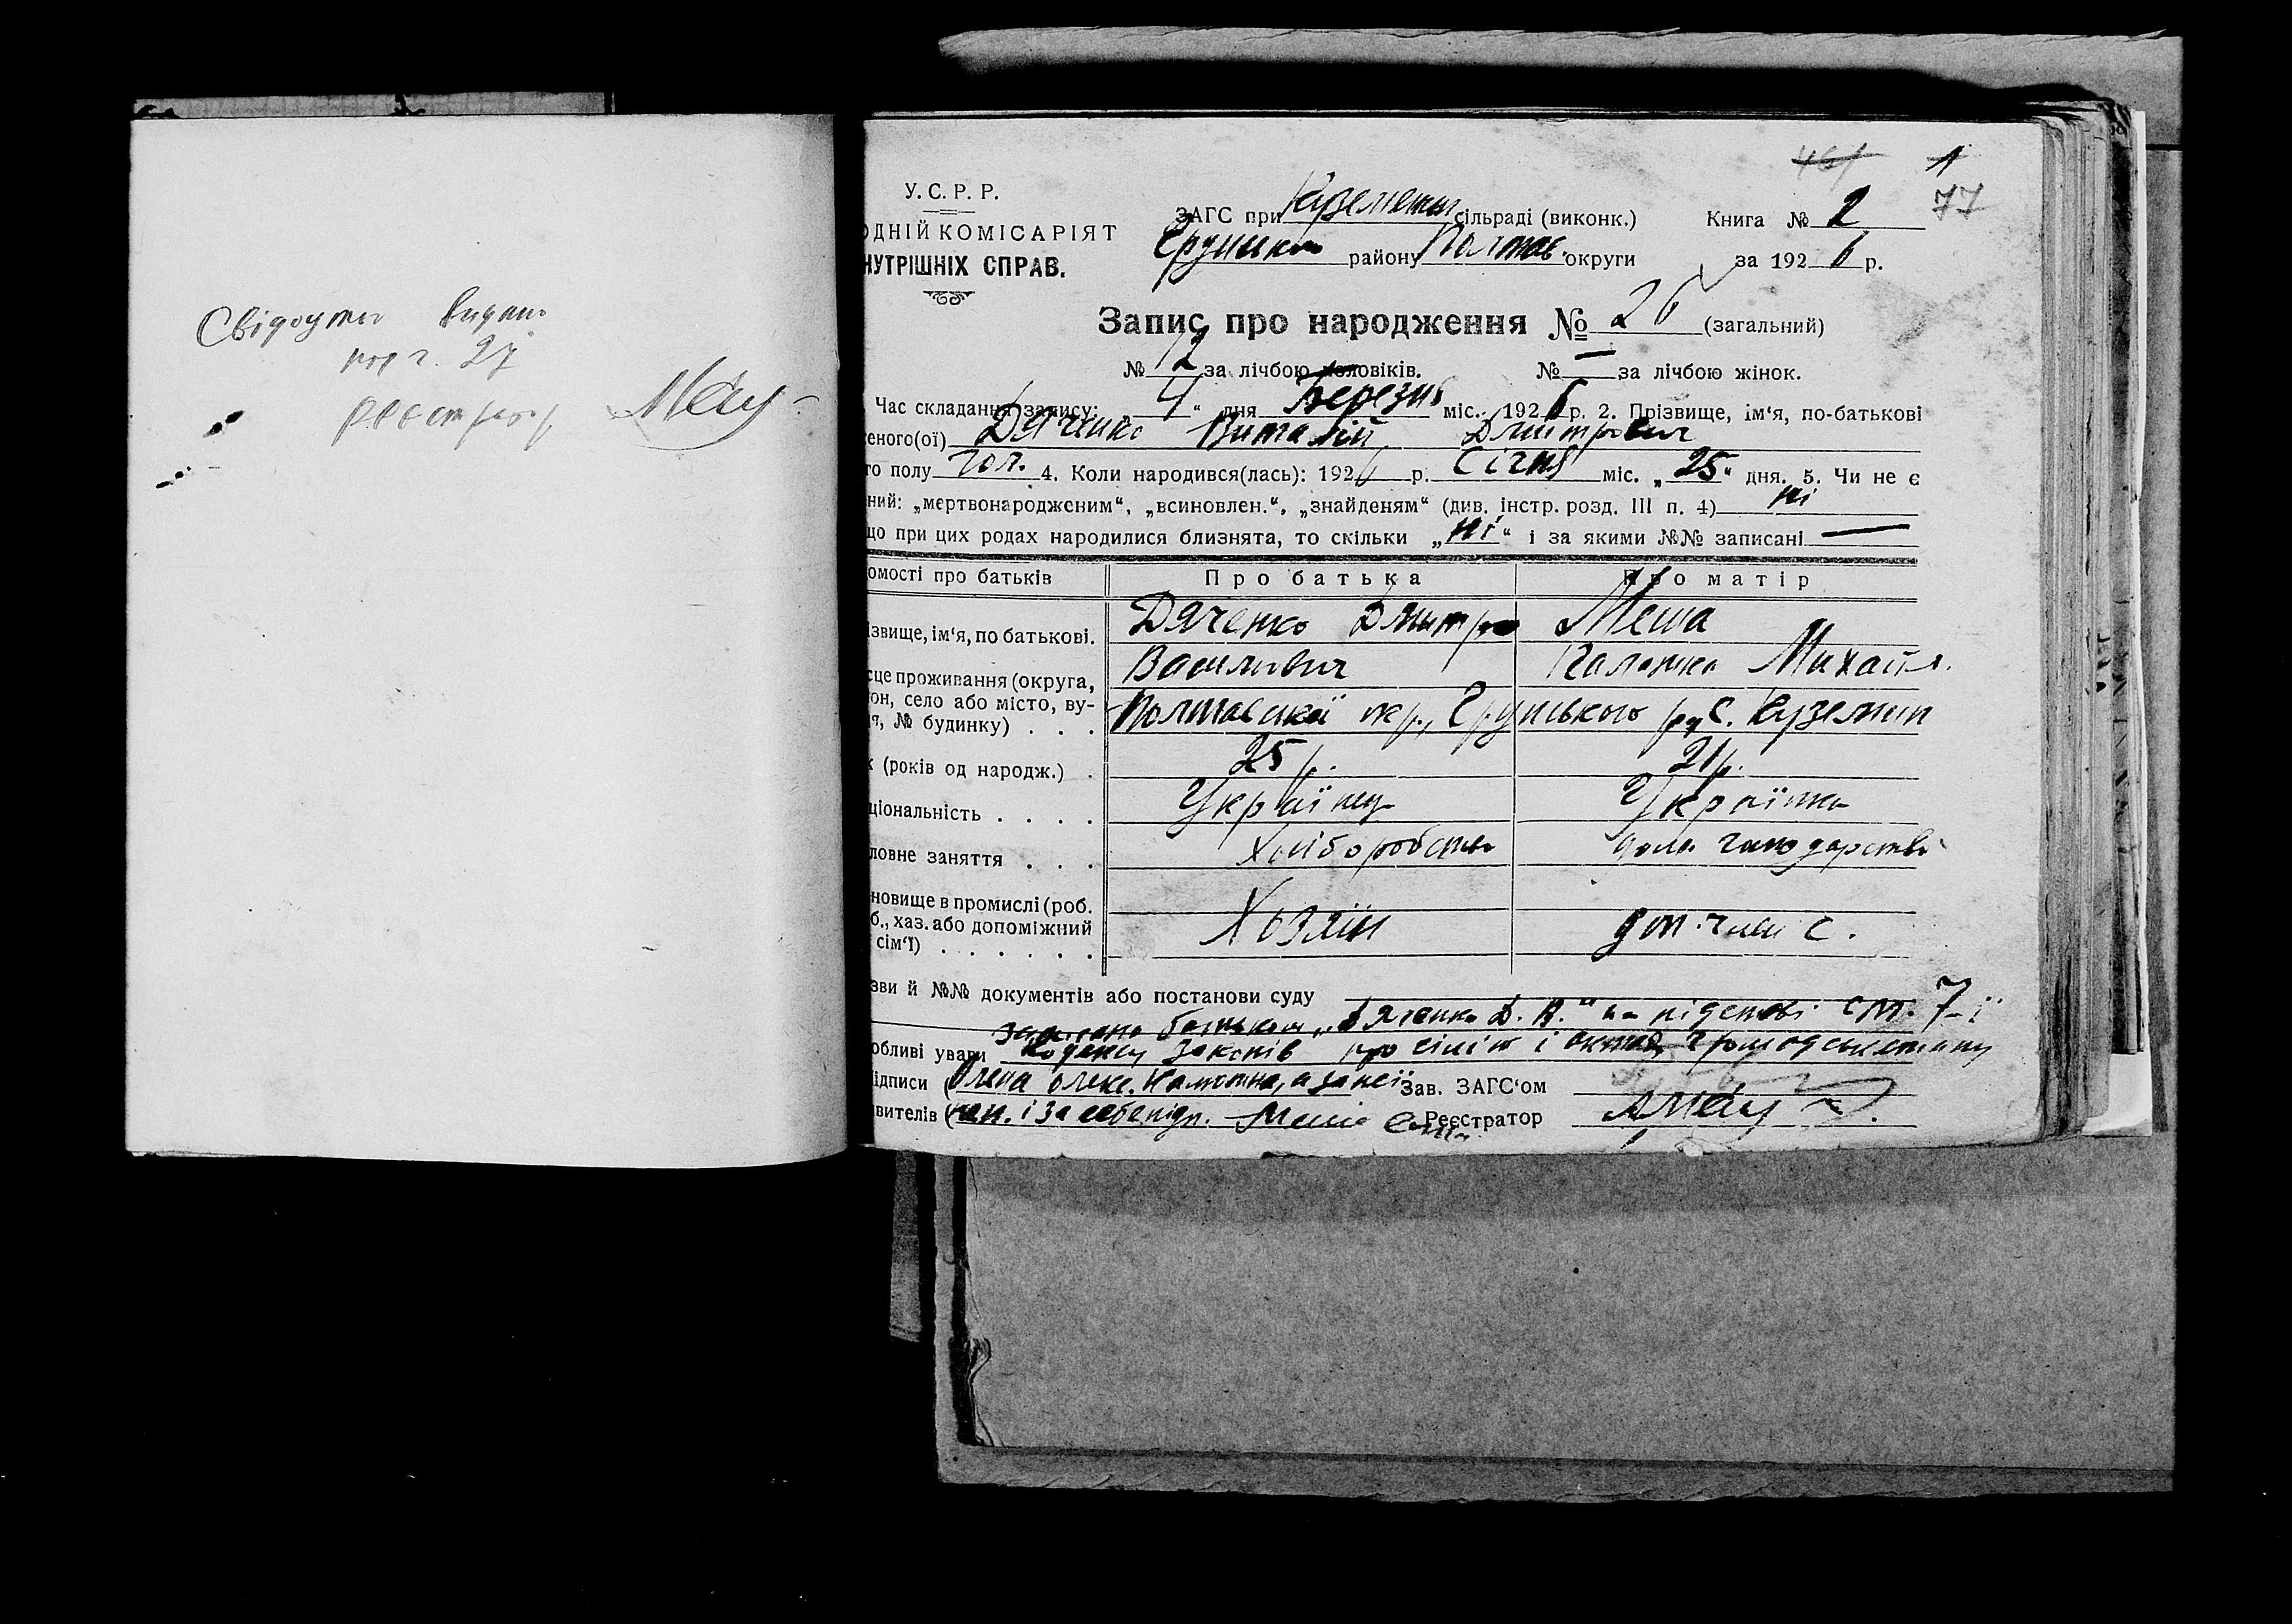 Свідоцтво видано
под ч. 27
реєстратор
461 1
77
У. С. Р. Р.
ОДНІЙ КОМІСАРІЯТ
НУТРІШНІХ СПРАВ.
ЗАГС при Куземен сільраді (виконк.) Книга № 2
Грунськ району Полтав. округи за 1926 р.
Запис про народження № 26 (загальний)
№ 12 за лічбою чоловіків. № — за лічбою жінок.
Час складання запису: „4“ дня Березня міс. 1926 р. 2. Прізвище, ім‘я, по-батькові
еного(ої) Дяченко Виталій Дмитрович
го полу чол. 4. Коли народився(лась): 1926 р. Січня міс. „25“ дня. 5. Чи не є
ний: „мертвонародженим“, „всиновлен.“, „знайденям“ (див. інстр. розд. III п. 4) ні
що при цих родах народилися близнята, то скільки „ні“ і за якими №№ записані —
омості про батьків Про батька Про матір
ізвище, ім‘я, по батькові. Дяченко Дмитро
Василович Михайл.
сце проживання (округа,
он, село або місто, ву- Полтавської окр., Грунського р. с. Куземин
я, № будинку) . . .
к (років од народж.) . 25 р. 21 р.
ціональність . . . . Українец Українка
ловне заняття . . . Хліборобство дом. господарстві
новище в промислі (роб.
б., хаз. або допоміжний Хозяїн доп. член с.
сім‘ї) . . . . . .
зви й №№ документів або постанови суду
записано батьком „Дяченко Д. В.“ на підставі ст. 7-ї
обливі уваги Кодексу законів про сім‘ю і актах громадськ стану
ідписи ( Олена Олекс. Зав. ЗАГС‘ом
явителів ( і за себе підп. Реєстратор